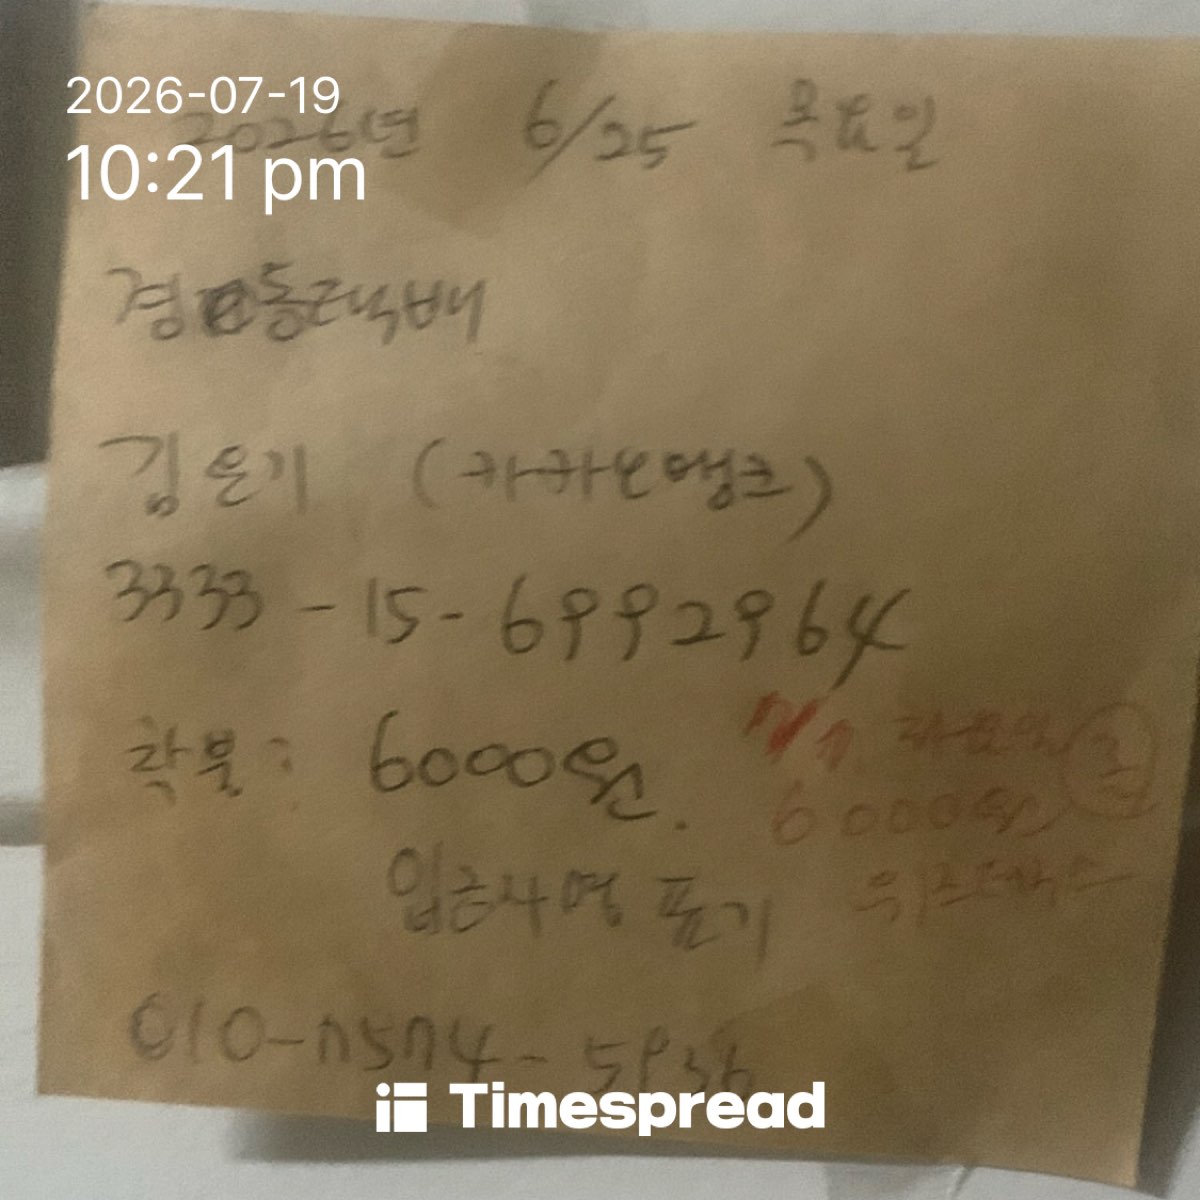 2026-07-19
10:21 pm
2026년 6/25 목요일
경동택배
김은기 (카카오뱅크)
3333-15-6992964
착불: 6000원.
입금자명 표기
6000원
010-7574-5936
Timespread